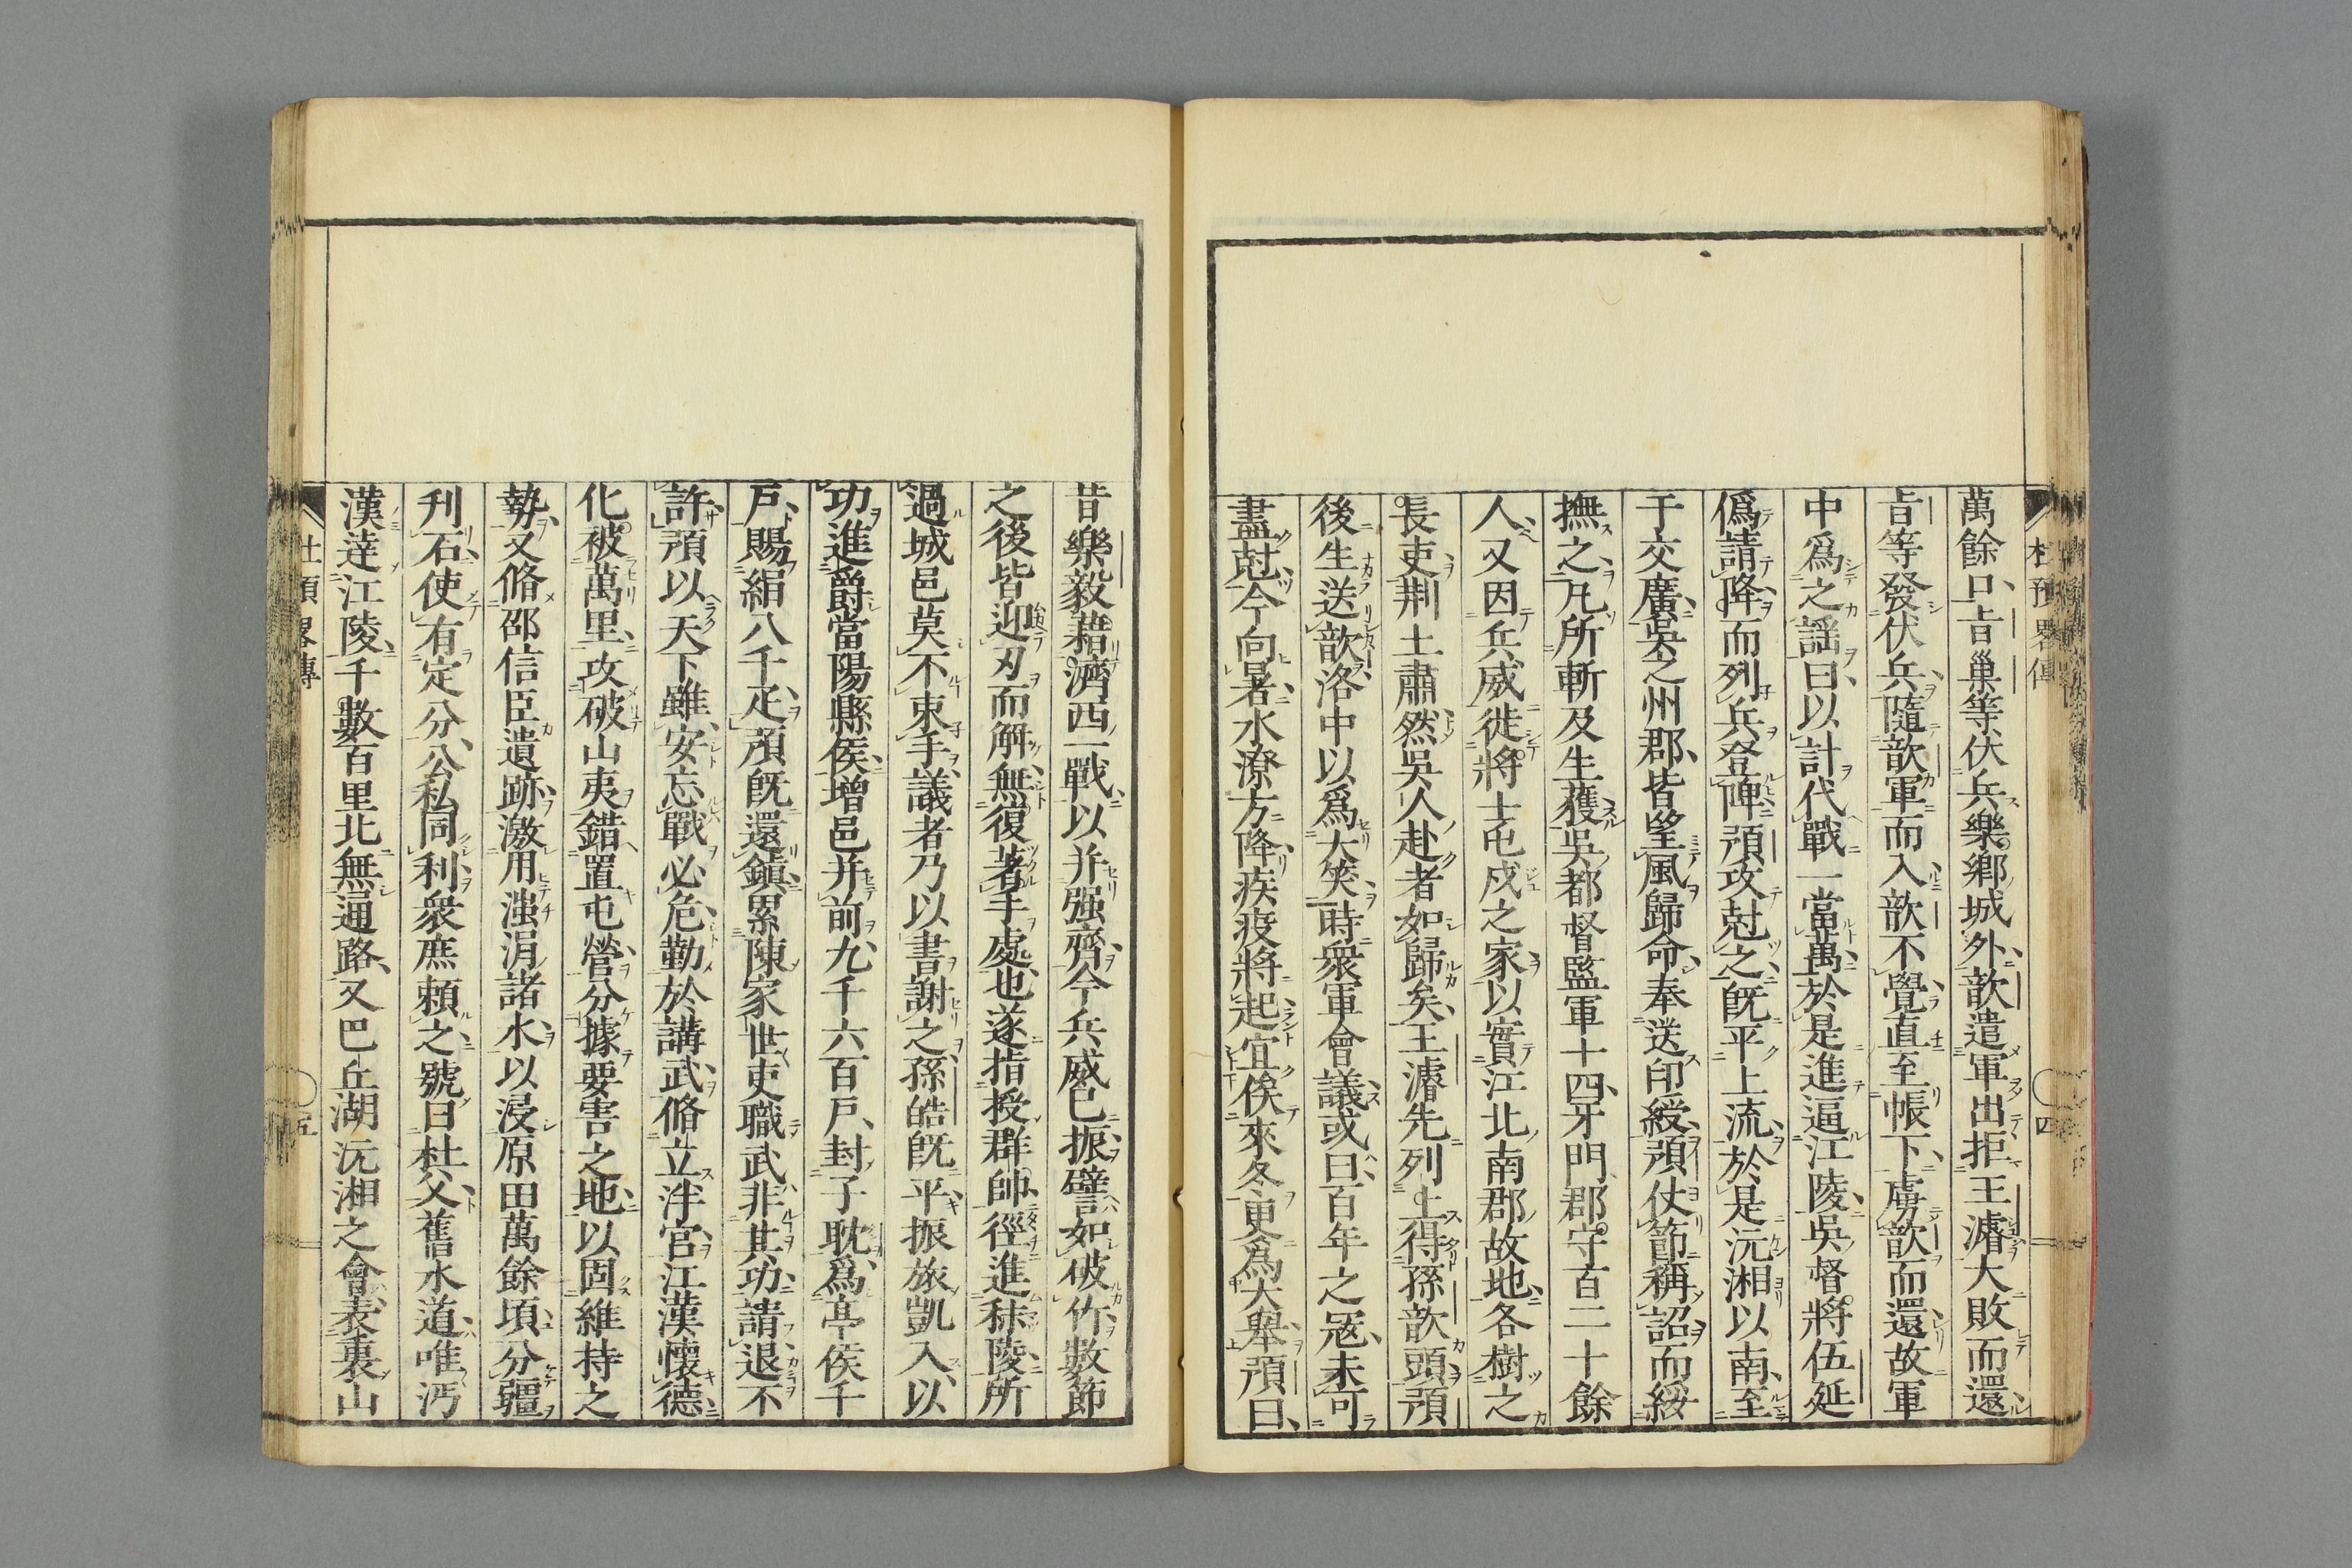 萬餘口㫖巢等伏兵樂鄉城外歆遣軍出拒王濬大敗而還
㫖等發伏兵隨歆軍而入歆不覺直至帳下虜歆而還故軍
中爲之謡曰以計代戰一當萬於是進逼江陵吳督將伍延
僞請降而列兵登陴預攻尅之旣平上流於是沅湘以南至
于交廣吳之州郡皆望風歸命奉送印綬預仗節稱詔而綏
撫之凡所斬及生獲吳都督監軍十四牙門郡守百二十餘
人又因兵威徙將士屯戍之家以實江北南郡故地各樹之
長吏荆土肅然吳人赴者如歸矣王濬先列上得孫歆頭預
後生送歆洛中以爲大笑時衆軍會議或曰百年之冦未可
盡尅今向暑水潦方降疾疫將起宜俟來冬更爲大舉預曰
杜預畧傳
四
昔樂毅藉濟西一戰以并强齊今兵威已振譬如破竹數節
之後皆迎刃而解無復著手處也遂指授群帥徑進秣陵所
過城邑莫不束手議者乃以書謝之孫皓旣平振旅凱入以
功進爵當陽縣侯增邑并前九千六百戶封子耽爲亭侯千
戶賜絹八千疋預旣還鎭累陳家世吏職武非其功請退不
許預以天下雖安忘戰必危勤於講武脩立泮宮江漢懷德
化被萬里攻破山夷錯置屯營分據要害之地以固維持之
勢又脩邵信臣遺跡激用滍淯諸水以浸原田萬餘頃分疆
刋石使有定分公私同利衆庶賴之號曰杜父舊水道唯沔
漢達江陵千數百里北無通路又巴丘湖沅湘之會表裏山
杜預畧傳
五